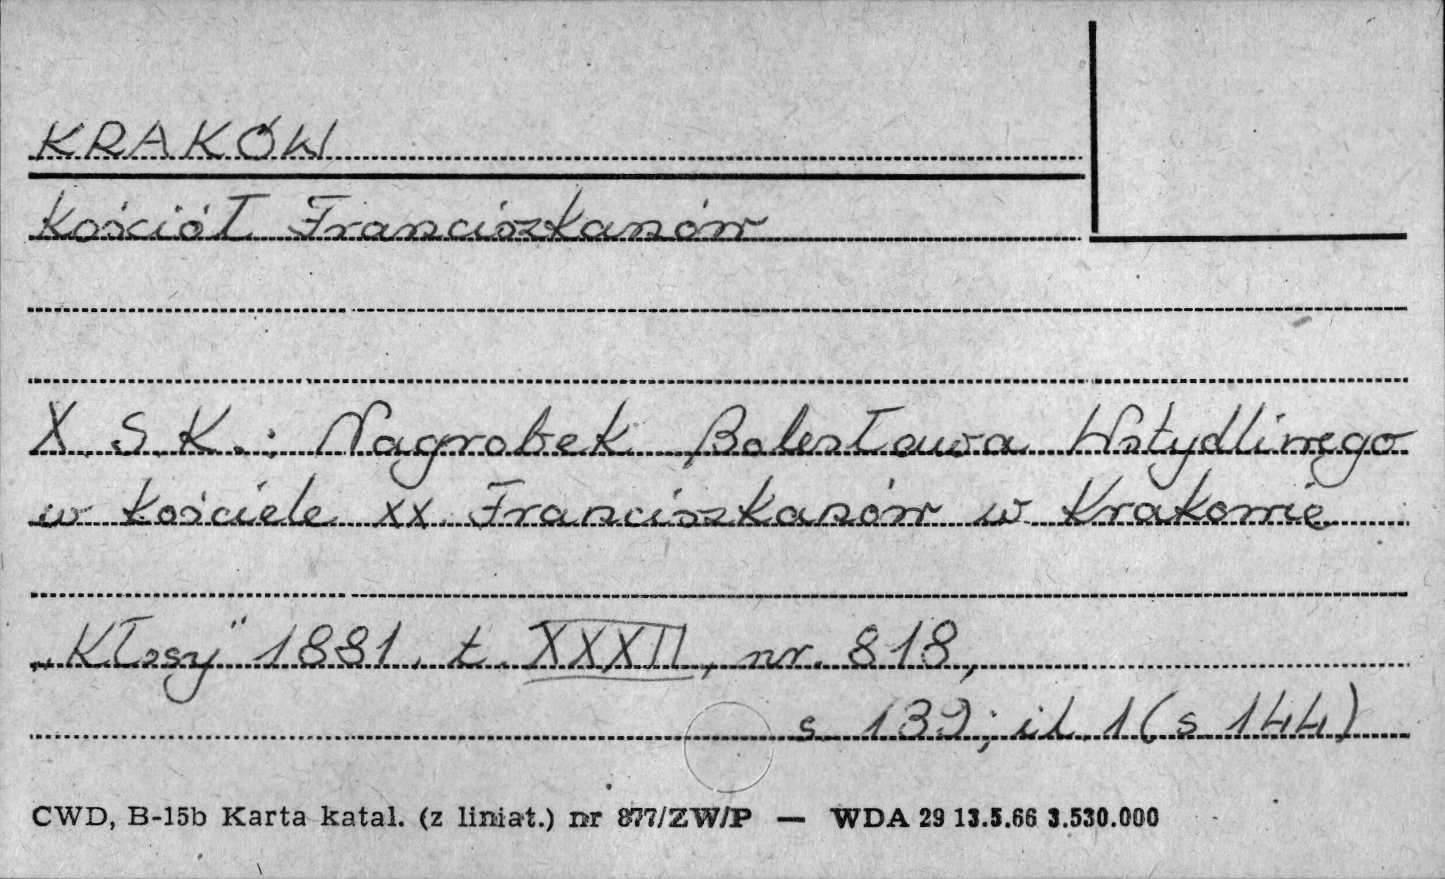 KRAKÓW
Kościół Franciszkanów
X. S. K.: Nagrobek Bolesława Wstydliwego
w kościele XX. Franciszkanów w Krakowie
„Kłosy" 1881, t. XXXII, nr. 818,
s. 139; il. 1 (s. 144)
CWD, B-15b Karta katal. (z liniat.) nr 877/ZW/P — WDA 29 13.5.66 3.530.000